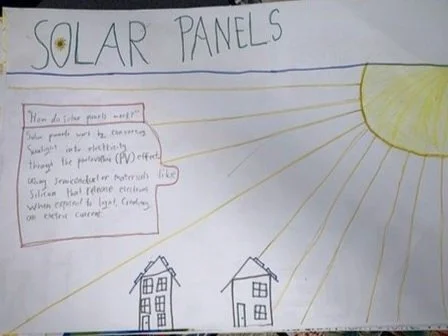 SOLAR PANELS
"How do solar panels work?"
Solar panels work by converting
Sunlight into electricity
through the photovoltaic (PV) effect,
using semiconductor materials like
Silicon that release electrons
when exposed to light, Creating
an electric current